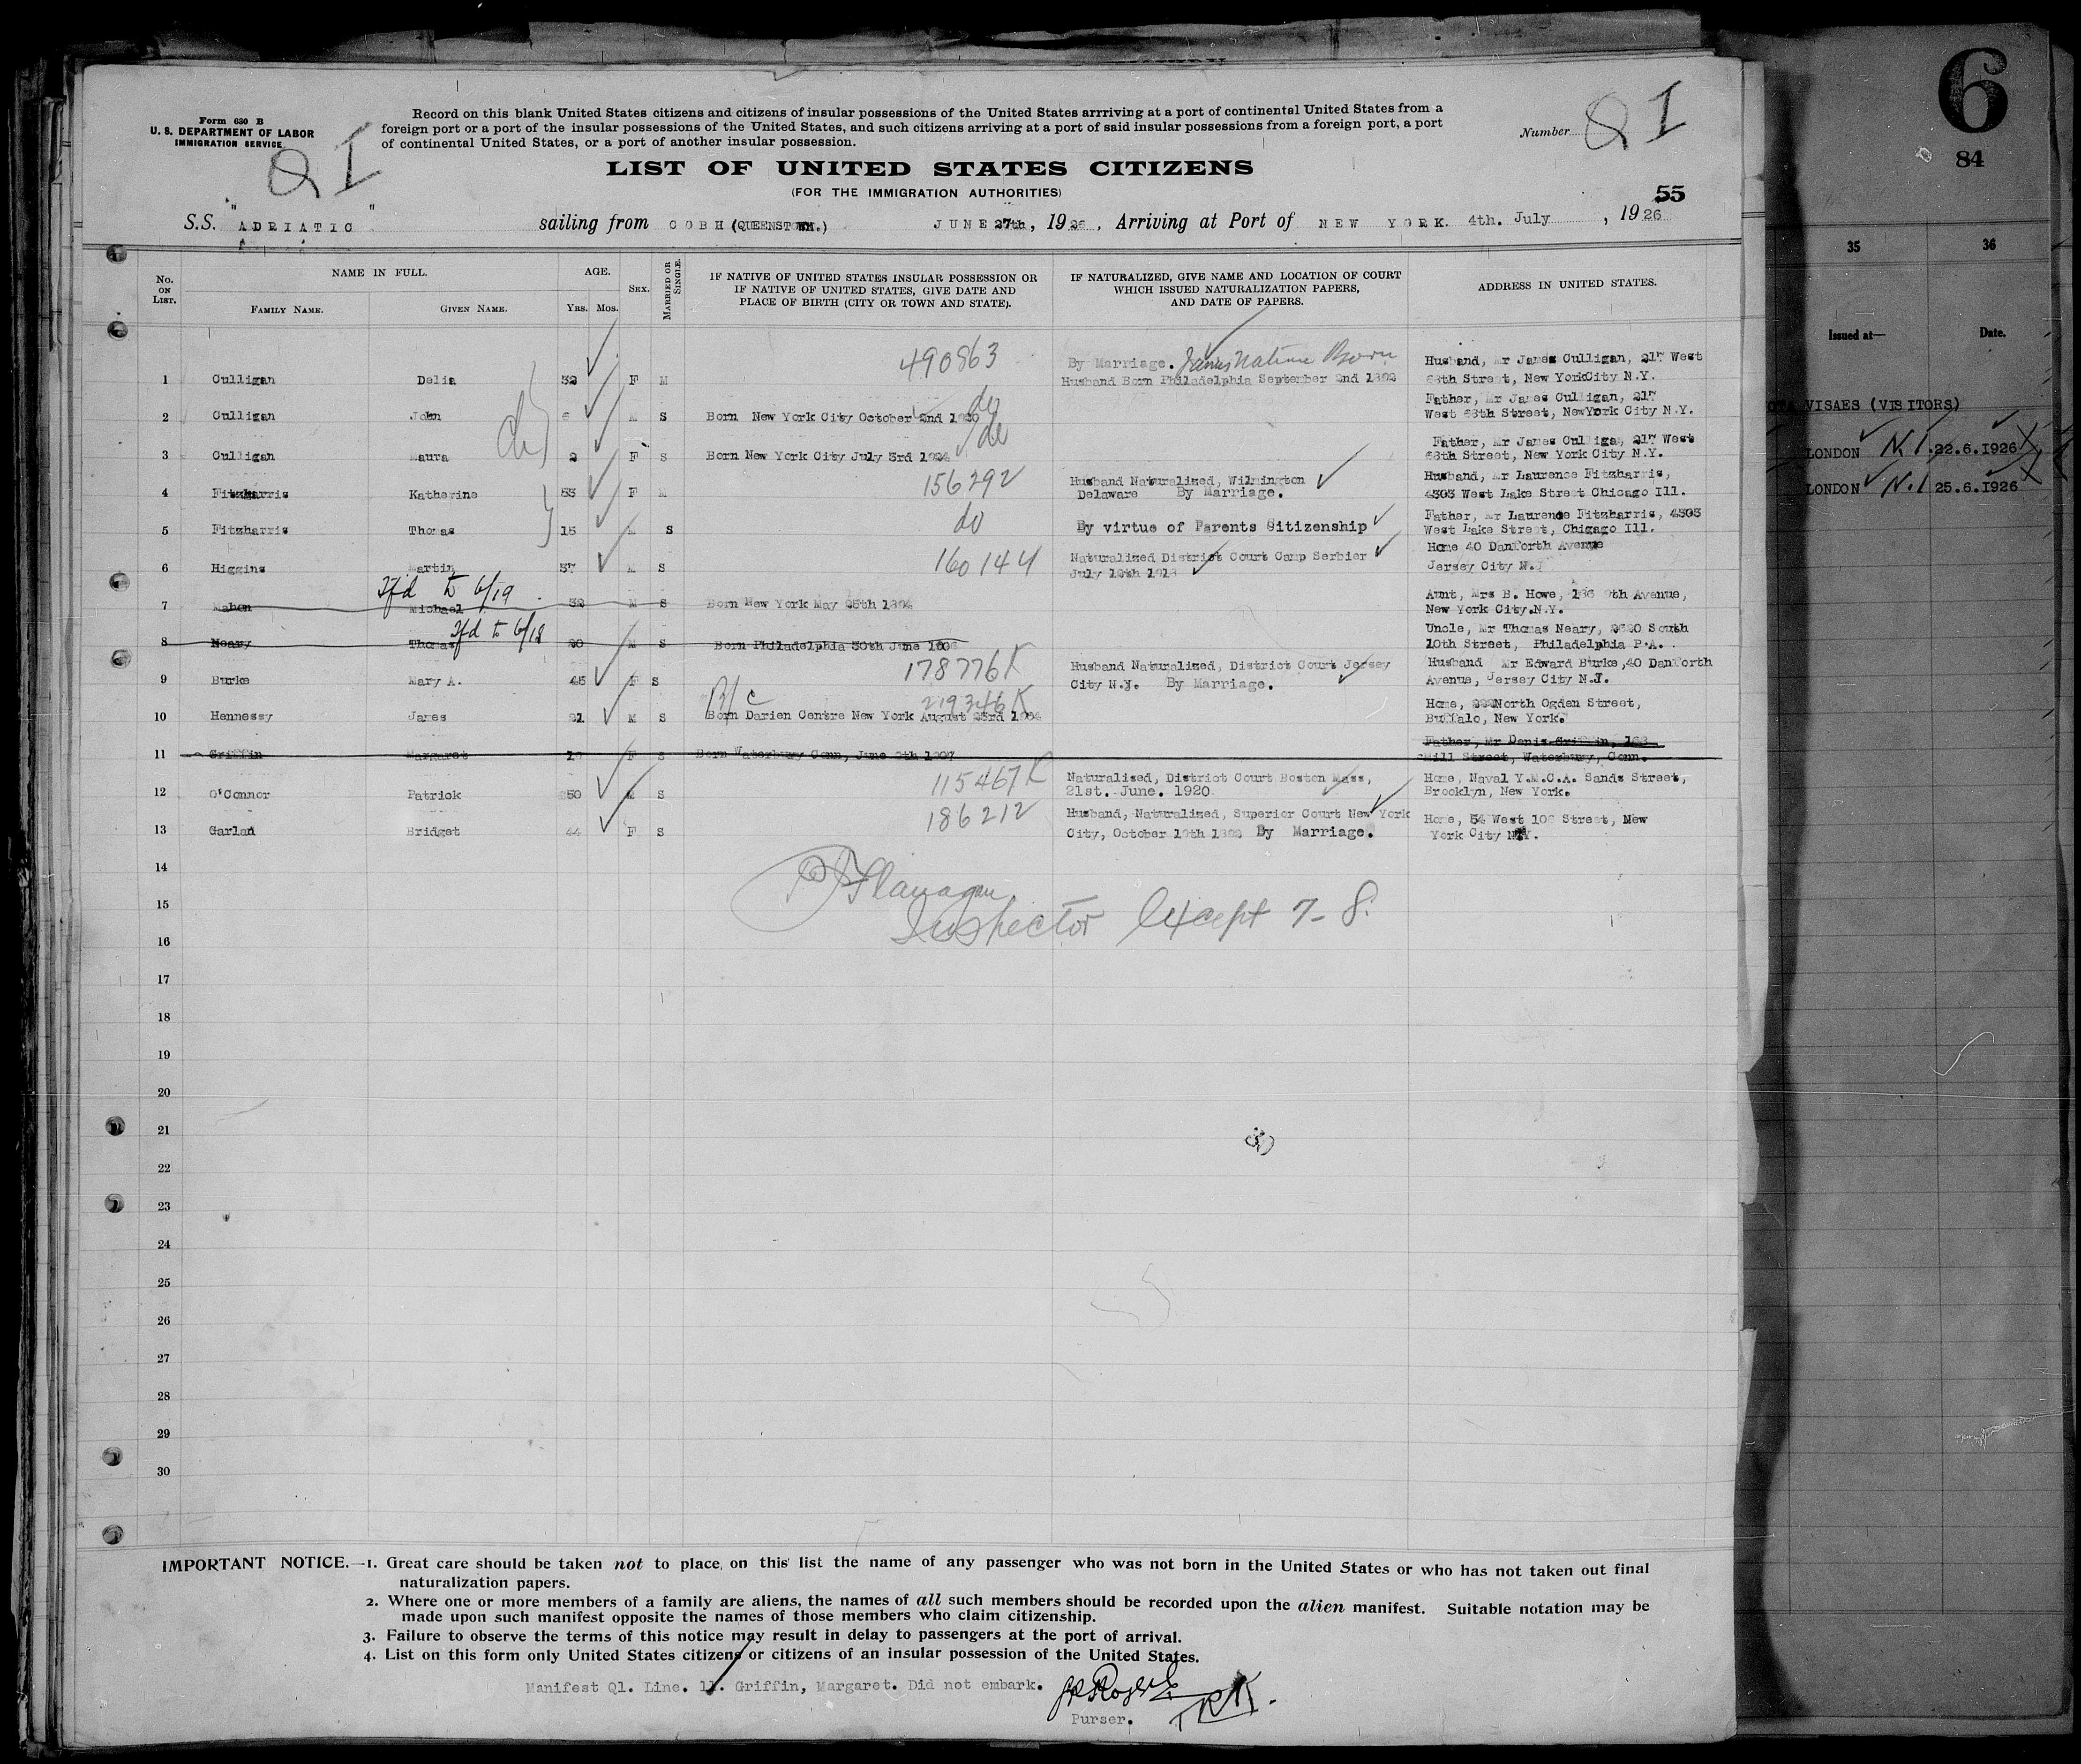 6
84
35 36
Issued at— Date.
VISAES (VISITORS)
LONDON N.I. 22.6.1926
LONDON N.I 25.6.1926
Form 630 B
U. S. DEPARTMENT OF LABOR
IMMIGRATION SERVICE
QI
Record on this blank United States citizens and citizens of insular possessions of the United States arrriving at a port of continental United States from a
foreign port or a port of the insular possessions of the United States, and such citizens arriving at a port of said insular possessions from a foreign port, a port
of continental United States, or a port of another insular possession.
Number QI
LIST OF UNITED STATES CITIZENS
(FOR THE IMMIGRATION AUTHORITIES)
55
S.S. "ADRIATIC" sailing from COBH (QUEENSTOWN.) JUNE 27th, 1926, Arriving at Port of NEW YORK. 4th. July, 1926
No. ON LIST. NAME IN FULL. AGE. SEX. MARRIED OR SINGLE. IF NATIVE OF UNITED STATES INSULAR POSSESSION OR IF NATIVE OF UNITED STATES, GIVE DATE AND PLACE OF BIRTH (CITY OR TOWN AND STATE). IF NATURALIZED, GIVE NAME AND LOCATION OF COURT WHICH ISSUED NATURALIZATION PAPERS, AND DATE OF PAPERS. ADDRESS IN UNITED STATES.
FAMILY NAME. GIVEN NAME. YRS. MOS.
490863 By Marriage. Native Born Husband, Mr James Culligan, 217 West
1 Culligan Delia 32 F M Husband Born Philadelphia September 2nd 1892 68th Street, New YorkCity N.Y.
do Father, Mr James Culligan, 217
2 Culligan John M S Born New York City October 2nd 1920 West 68th Street, NewYork City N.Y.
do Father, Mr James Culliga, 217 West
3 Culligan Maura 2 F S Born New York City July 3rd 1924 68th Street, New York City N.Y.
156292 Husband Naturalized, Wilmington Husband, Mr Laurence Fitzharris,
4 Fitzharris Katherine 53 F M Delaware By Marriage. 4303 West Lake Street Chicago Ill.
do Father, Mr Laurence Fitzharris, 4303
5 Fitzharris Thomas 15 M S By virtue of Parents Citizenship West Lake Street, Chigago Ill.
160144 Naturalized District Court Camp Serbier Home 40 Danforth Avenue
6 Higgins Martin 37 M S July 19th 1918 Jersey City N.J
Tfd to 6/19 Aunt, Mrs B. Howe, 9th Avenue,
7 Mahon Michael 32 M S Born New York May 25th 1894 New York City.N.Y.
Tfd to 6/18 Uncle, Mr Thomas Neary, 2620 South
8 Neary Thomas 20 M S Born Philadelphia 30th June 10th Street, Philadelphia P.A.
178776K Husband Naturalized, District Court Jersey Husband Mr Edward Burke, 40 Danforth
9 Burke Mary A. 45 F S City N.J. By Marriage. Avenue, Jersey City N.J.
B/C 219346K Home, 222North Ogden Street,
10 Hennessy James 21 M S Born Darien Centre New York August 23rd 1904 Buffalo, New York.
Father, Mr Denis Griffin, 163
11 Griffin Margaret 19 F S Born Waterbury Conn, June 9th 1907 Mill Street, Waterbury, Conn.
115467K Naturalised, District Court Boston Mass, Home, Naval Y.M.C.A. Sands Street,
12 O'Connor Patrick 50 M S 21st. June. 1920 Brooklyn, New York.
186212 Husband, Naturalized, Superior Court New York Home, 54 West Street, New
13 Garlan Bridget 44 F S City, October 19th By Marriage. York City N.Y.
14
P J Flanagan
15
Inspector Except 7-8.
16
17
18
19
20
21
22
23
24
25
26
27
28
29
30
IMPORTANT NOTICE.—1. Great care should be taken not to place on this list the name of any passenger who was not born in the United States or who has not taken out final
naturalization papers.
2. Where one or more members of a family are aliens, the names of all such members should be recorded upon the alien manifest. Suitable notation may be
made upon such manifest opposite the names of those members who claim citizenship.
3. Failure to observe the terms of this notice may result in delay to passengers at the port of arrival.
4. List on this form only United States citizens or citizens of an insular possession of the United States.
Manifest Q1. Line. 11. Griffin, Margaret. Did not embark.
Purser.